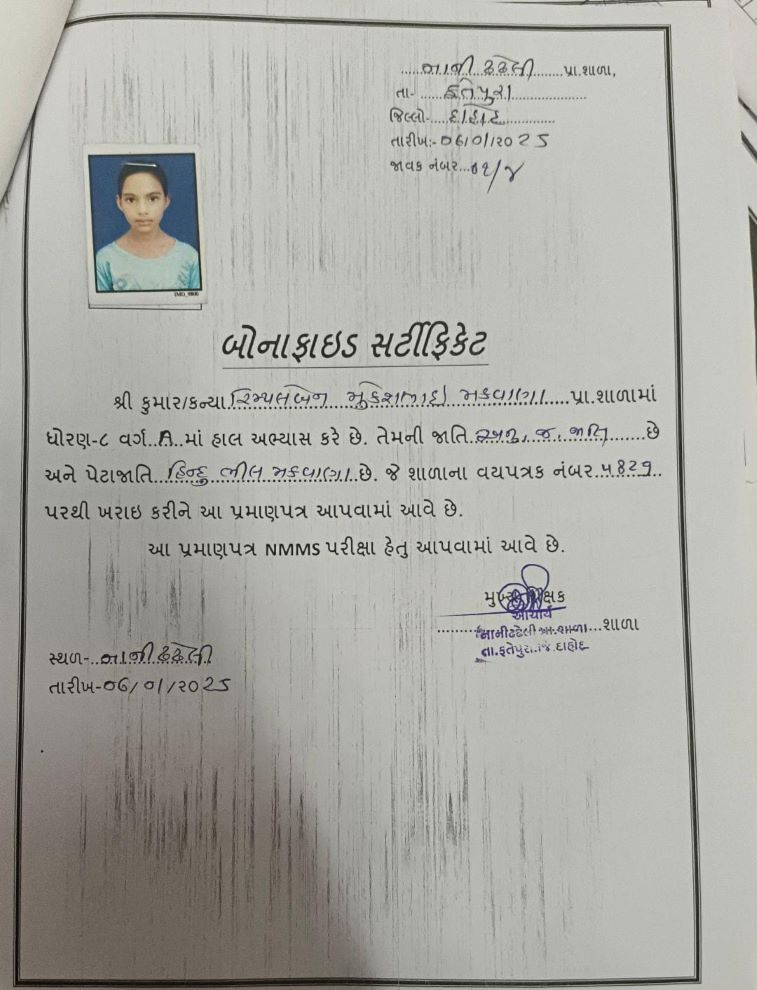 નાની ઢઢેલી પ્રા.શાળા,
તા- ફતેપુરા
જિલ્લો- દાહોદ
તારીખ:- ૦૬/૦૧/૨૦૨૫
જાવક નંબર
બોનાફાઇડ સર્ટીફિકેટ
શ્રી કુમાર/કન્યા રિમ્પલબેન મુકેશભાઇ મકવાણા પ્રા.શાળામાં
ધોરણ-૮ વર્ગ A માં હાલ અભ્યાસ કરે છે. તેમની જાતિ અનુ. જ. જાતિ છે
અને પેટાજાતિ હિન્દુ ભીલ મકવાણા છે. જે શાળાના વયપત્રક નંબર
પરથી ખરાઇ કરીને આ પ્રમાણપત્ર આપવામાં આવે છે.
આ પ્રમાણપત્ર NMMS પરીક્ષા હેતુ આપવામાં આવે છે.
મુખ્ય શિક્ષક
આચાર્ય
નાનીઢઢેલી પ્રા.શાળા શાળા
તા.ફતેપુરા.જિ.દાહોદ
સ્થળ- નાની ઢઢેલી
તારીખ-૦૬/૦૧/૨૦૨૫